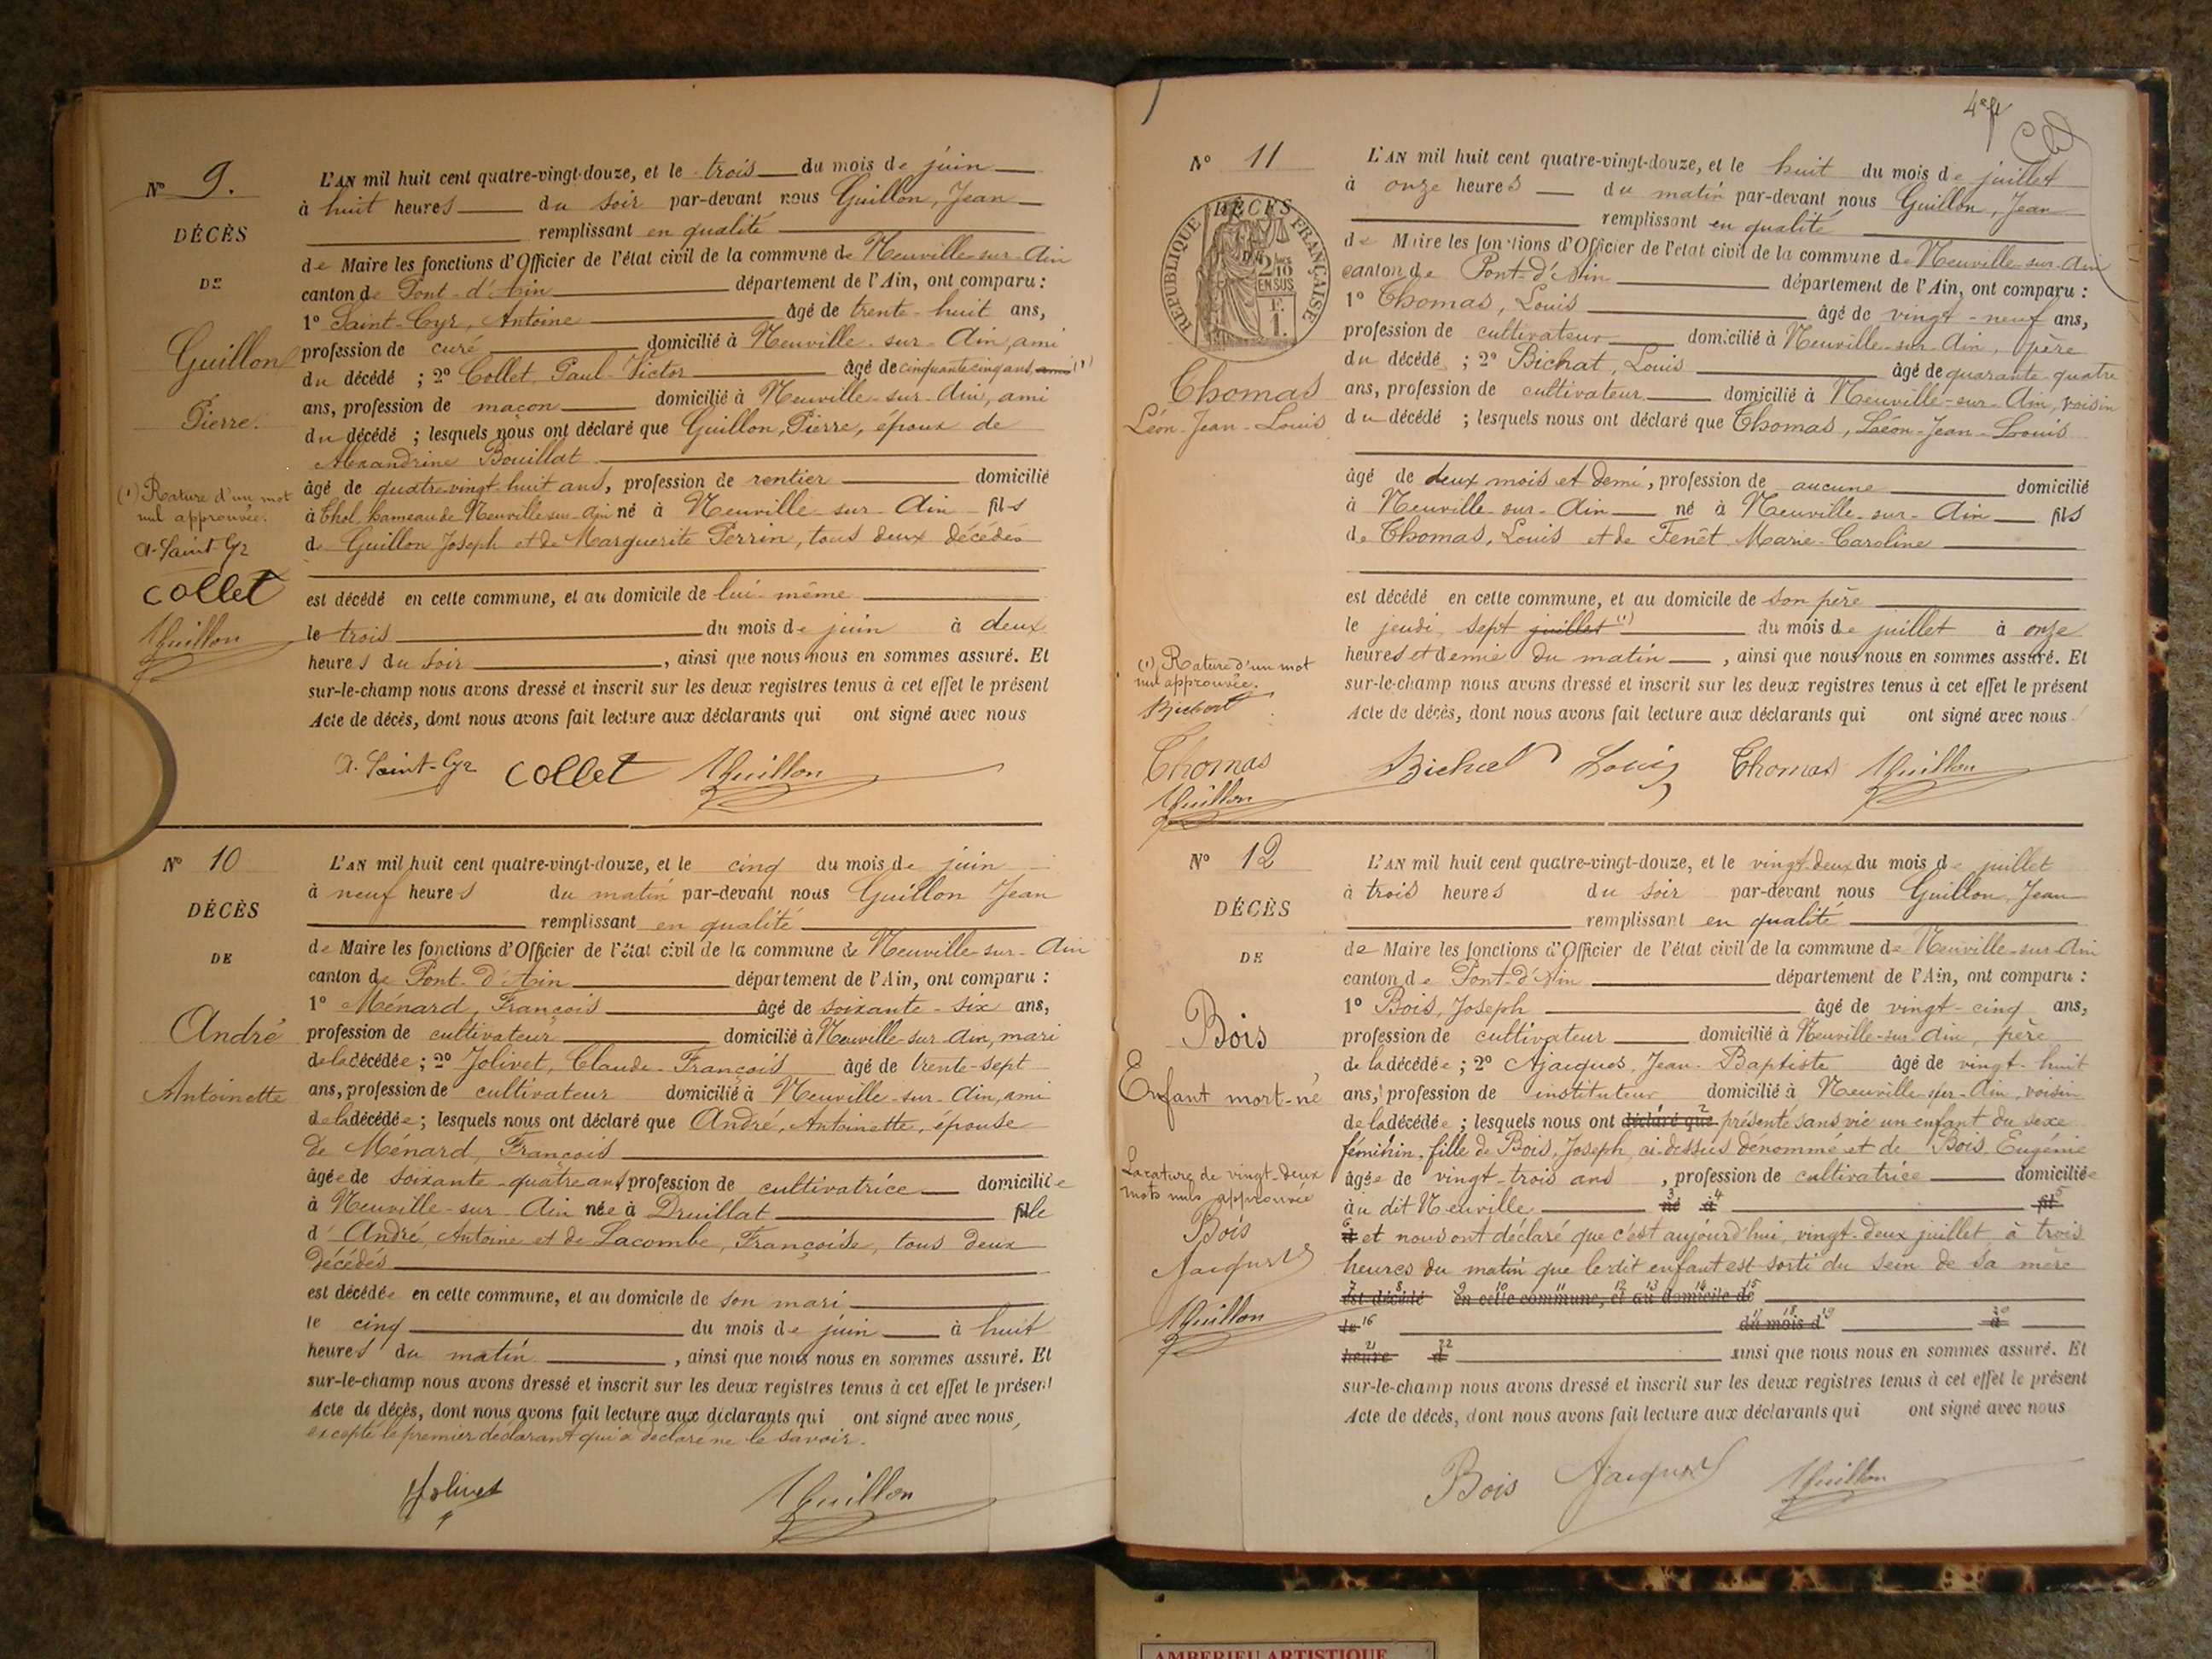 N° 9.
DÉCÈS
DE
Guillon
Pierre.
(1) Rature d'un mot
nul approuvée.
A. Saint-Cyr
Collet
JGuillon
L'AN mil huit cent quatre-vingt-douze, et le trois du mois de juin
à huit heures du soir par-devant nous Guillon, Jean
remplissant en qualité
de Maire les fonctions d'Officier de l'état civil de la commune de Neuville-sur-Ain
canton de Pont-d'Ain département de l'Ain, ont comparu :
1° Saint-Cyr, Antoine âgé de trente-huit ans,
profession de curé domicilié à Neuville-sur-Ain, ami
du décédé ; 2° Collet, Paul-Victor âgé de cinquante cinq ans, ami (1)
ans, profession de maçon domicilié à Neuville-sur-Ain, ami
du décédé ; lesquels nous ont déclaré que Guillon, Pierre, époux de
Alexandrine Bouillat
âgé de quatre-vingt-huit ans, profession de rentier domicilié
à Chol, hameau de Neuville-sur-Ain né à Neuville-sur-Ain fils
de Guillon Joseph et de Marguerite Perrin, tous deux décédés
est décédé en cette commune, et au domicile de lui-même
le trois du mois de juin à deux
heures du soir, ainsi que nous nous en sommes assuré. Et
sur-le-champ nous avons dressé et inscrit sur les deux registres tenus à cet effet le présent
Acte de décès, dont nous avons fait lecture aux déclarants qui ont signé avec nous
A. Saint-Cyr Collet JGuillon
N° 10
DÉCÈS
DE
André
Antoinette
L'AN mil huit cent quatre-vingt-douze, et le cinq du mois de juin
à neuf heures du matin par-devant nous Guillon Jean
remplissant en qualité
de Maire les fonctions d'Officier de l'état civil de la commune de Neuville-sur-Ain
canton de Pont-d'Ain département de l'Ain, ont comparu :
1° Ménard, François âgé de soixante-six ans,
profession de cultivateur domicilié à Neuville-sur-Ain, mari
de la décédée ; 2° Jolivet, Claude-François âgé de trente-sept
ans, profession de cultivateur domicilié à Neuville-sur-Ain, ami
de la décédée ; lesquels nous ont déclaré que André, Antoinette, épouse
de Ménard, François
âgée de soixante-quatre ans, profession de cultivatrice domiciliée
à Neuville-sur-Ain née à Druillat fille
d' André, Antoine et de Lacombe, Françoise, tous deux
décédés
est décédée en cette commune, et au domicile de son mari
le cinq du mois de juin à huit
heures du matin, ainsi que nous nous en sommes assuré. Et
sur-le-champ nous avons dressé et inscrit sur les deux registres tenus à cet effet le présent
Acte de décès, dont nous avons fait lecture aux déclarants qui ont signé avec nous,
excepté le premier déclarant qui a déclaré ne le savoir.
Jolivet JGuillon
N° 11
RÉPUBLIQUE FRANÇAISE
DÉCÈS
DE
2/10
EN SUS
F.
1.
Thomas
Léon-Jean-Louis
(1) Rature d'un mot
nul approuvée.
Bichat
Thomas
JGuillon
L'AN mil huit cent quatre-vingt-douze, et le huit du mois de juillet
à onze heures du matin par-devant nous Guillon, Jean
remplissant en qualité
de Maire les fonctions d'Officier de l'état civil de la commune de Neuville-sur-Ain
canton de Pont-d'Ain département de l'Ain, ont comparu :
1° Thomas, Louis âgé de vingt-neuf ans,
profession de cultivateur domicilié à Neuville-sur-Ain, père
du décédé ; 2° Bichat, Louis âgé de quarante-quatre
ans, profession de cultivateur domicilié à Neuville-sur-Ain, voisin
du décédé ; lesquels nous ont déclaré que Thomas, Léon-Jean-Louis
âgé de deux mois et demi, profession de aucune domicilié
à Neuville-sur-Ain né à Neuville-sur-Ain fils
de Thomas, Louis et de Fenêt Marie-Caroline
est décédé en cette commune, et au domicile de son père
le jeudi, sept juillet (1) du mois de juillet à onze
heures et demie du matin, ainsi que nous nous en sommes assuré. Et
sur-le-champ nous avons dressé et inscrit sur les deux registres tenus à cet effet le présent
Acte de décès, dont nous avons fait lecture aux déclarants qui ont signé avec nous
Bichat Louis Thomas JGuillon
N° 12
DÉCÈS
DE
Bois
Enfant mort-né
La rature de vingt-deux
mots nuls approuvée
Bois
Ajacques
JGuillon
L'AN mil huit cent quatre-vingt-douze, et le vingt-deux du mois de juillet
à trois heures du soir par-devant nous Guillon, Jean
remplissant en qualité
de Maire les fonctions d'Officier de l'état civil de la commune de Neuville-sur-Ain
canton de Pont-d'Ain département de l'Ain, ont comparu :
1° Bois, Joseph âgé de vingt-cinq ans,
profession de cultivateur domicilié à Neuville-sur-Ain, père
de la décédée ; 2° Ajacques, Jean-Baptiste âgé de vingt-huit
ans, profession de instituteur domicilié à Neuville-sur-Ain, voisin
de la décédée ; lesquels nous ont déclaré que présenté sans vie un enfant du sexe
féminin, fille de Bois, Joseph, ci-dessus dénommé et de Bois Eugénie
âgée de vingt-trois ans, profession de cultivatrice domiciliée
à au dit Neuville né à fil
d et nous ont déclaré que c'est aujourd'hui, vingt-deux juillet, à trois
heures du matin que ledit enfant est sorti du sein de sa mère
est décédé en cette commune, et au domicile de
le du mois d à
heure d ainsi que nous nous en sommes assuré. Et
sur-le-champ nous avons dressé et inscrit sur les deux registres tenus à cet effet le présent
Acte de décès, dont nous avons fait lecture aux déclarants qui ont signé avec nous
Bois Ajacques JGuillon
AMBERIEU ARTISTIQUE